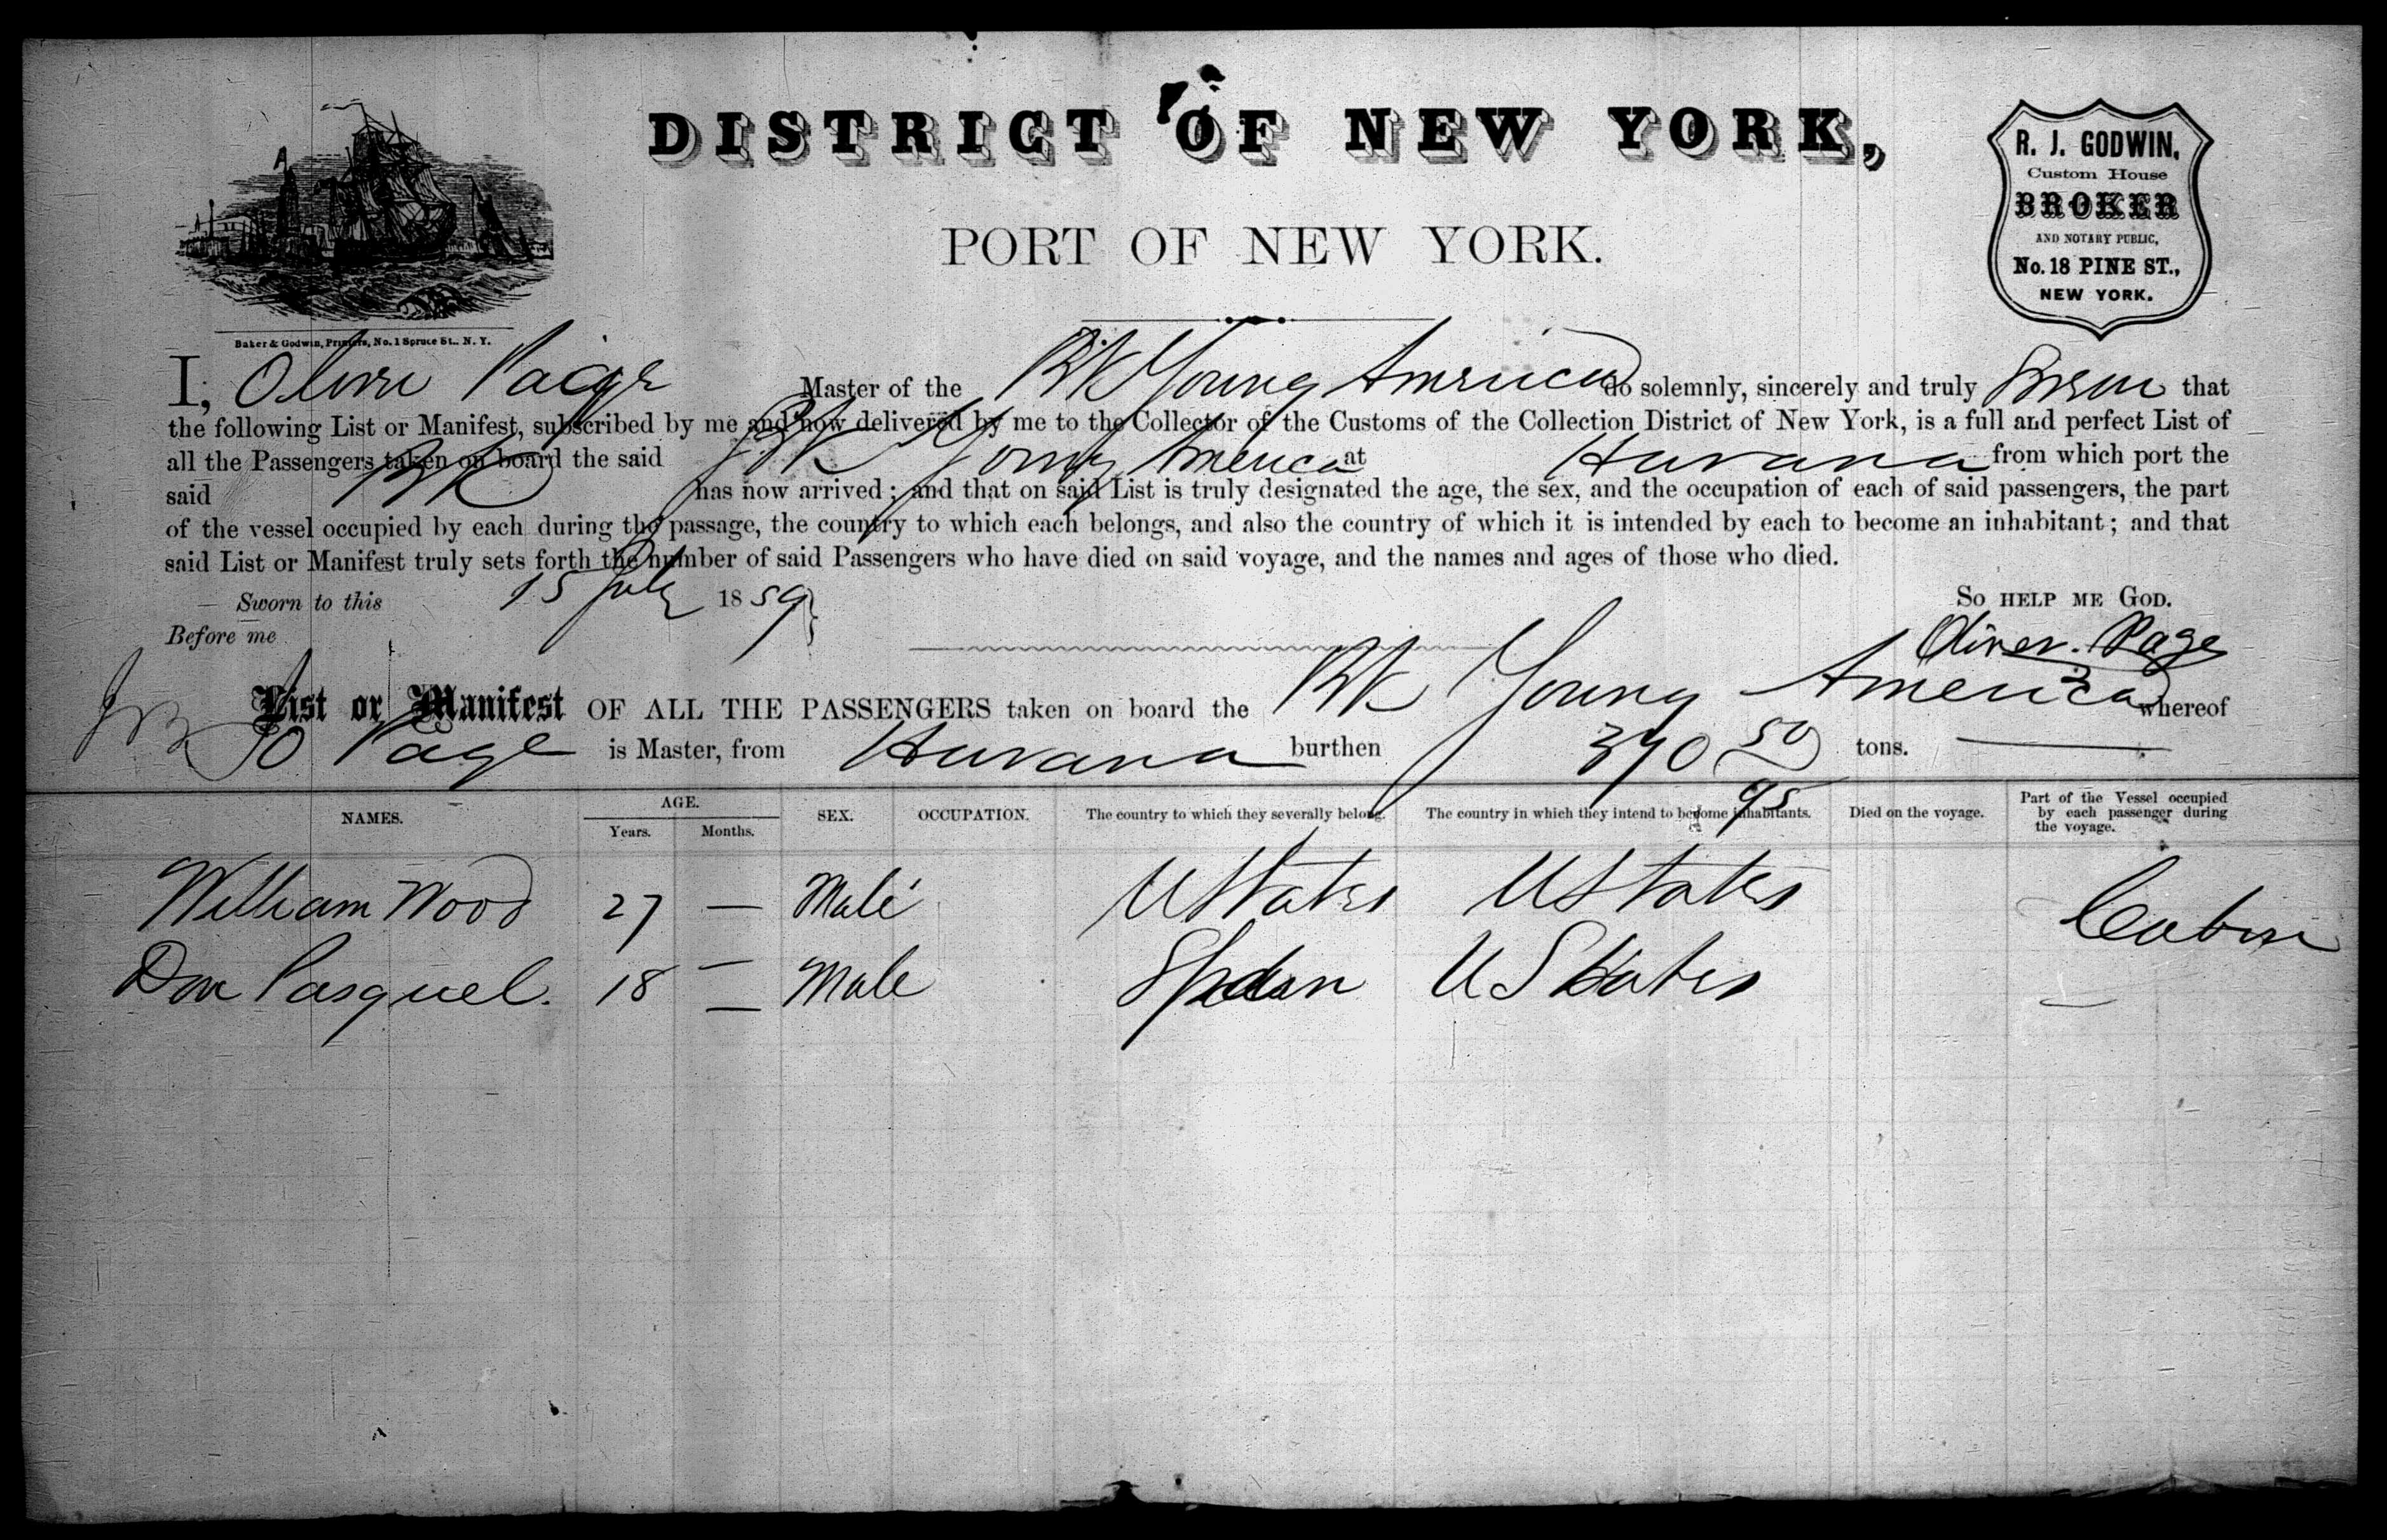 DISTRICT OF NEW YORK,
PORT OF NEW YORK.
R. J. GODWIN,
Custom House
BROKER
AND NOTARY PUBLIC,
No. 18 PINE ST.,
NEW YORK.
Baker & Godwin, Printers, No. 1 Spruce St., N. Y.
I, Oliver Paige Master of the Bk Young America do solemnly, sincerely and truly Swear that
the following List or Manifest, subscribed by me and now delivered by me to the Collector of the Customs of the Collection District of New York, is a full and perfect List of
all the Passengers taken on board the said Bk Young America at Havana from which port the
said Bk has now arrived; and that on said List is truly designated the age, the sex, and the occupation of each of said passengers, the part
of the vessel occupied by each during the passage, the country to which each belongs, and also the country of which it is intended by each to become an inhabitant; and that
said List or Manifest truly sets forth the number of said Passengers who have died on said voyage, and the names and ages of those who died.
Sworn to this 15 July 1859 So HELP ME GOD.
Before me Oliver Page
List or Manifest OF ALL THE PASSENGERS taken on board the Bk Young America whereof
O Page is Master, from Havana burthen 390 50/95 tons.
NAMES. AGE. Years. Months. SEX. OCCUPATION. The country to which they severally belong. The country in which they intend to become inhabitants. Died on the voyage. Part of the Vessel occupied by each passenger during the voyage.
William Wood 27 — Male U States U States Cabin
Don Pasquel. 18 — Male U States